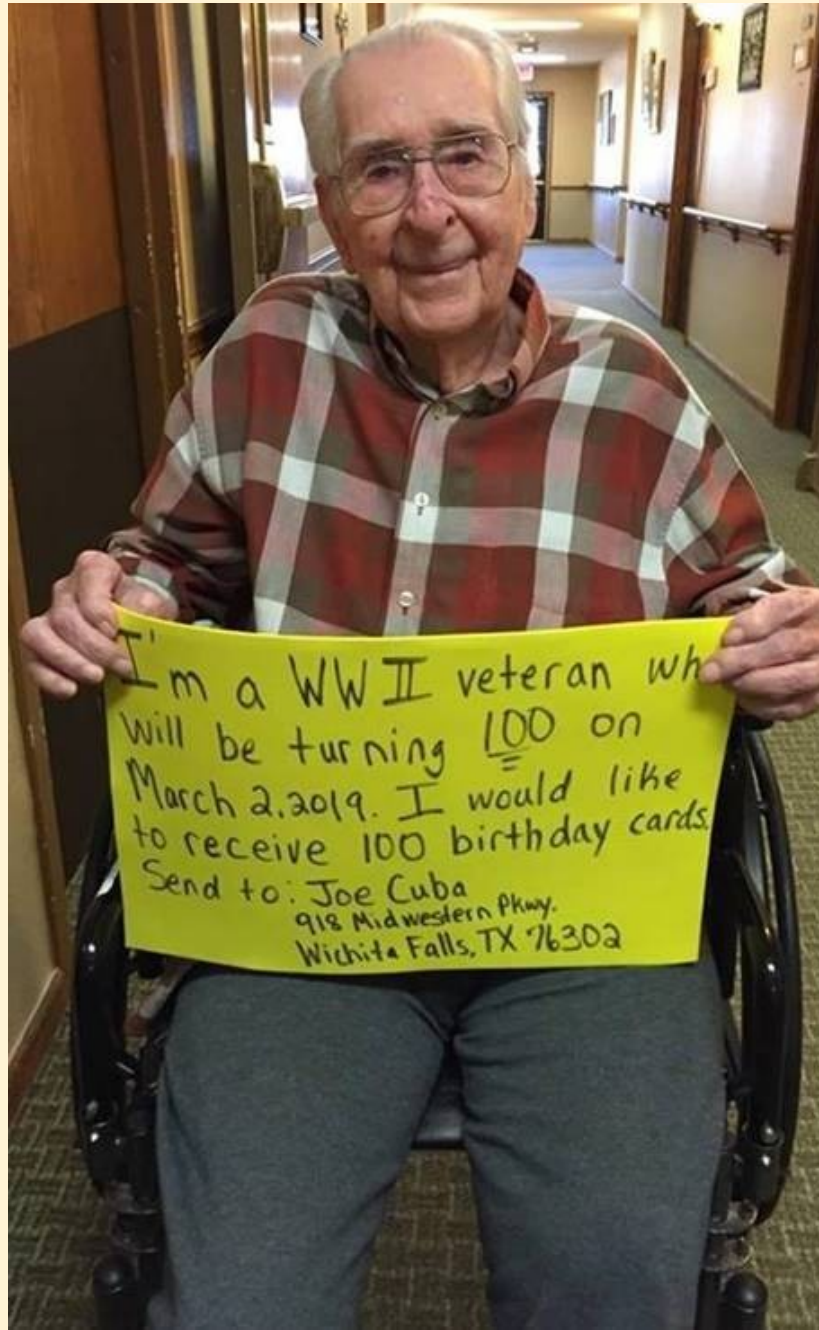 I'm a WW II veteran wh
will be turning 100 on
March 2.2019. I would like
to receive 100 birthday cards.
Send to: Joe Cuba
918 Midwestern Pkwy.
Wichita Falls, TX 76302